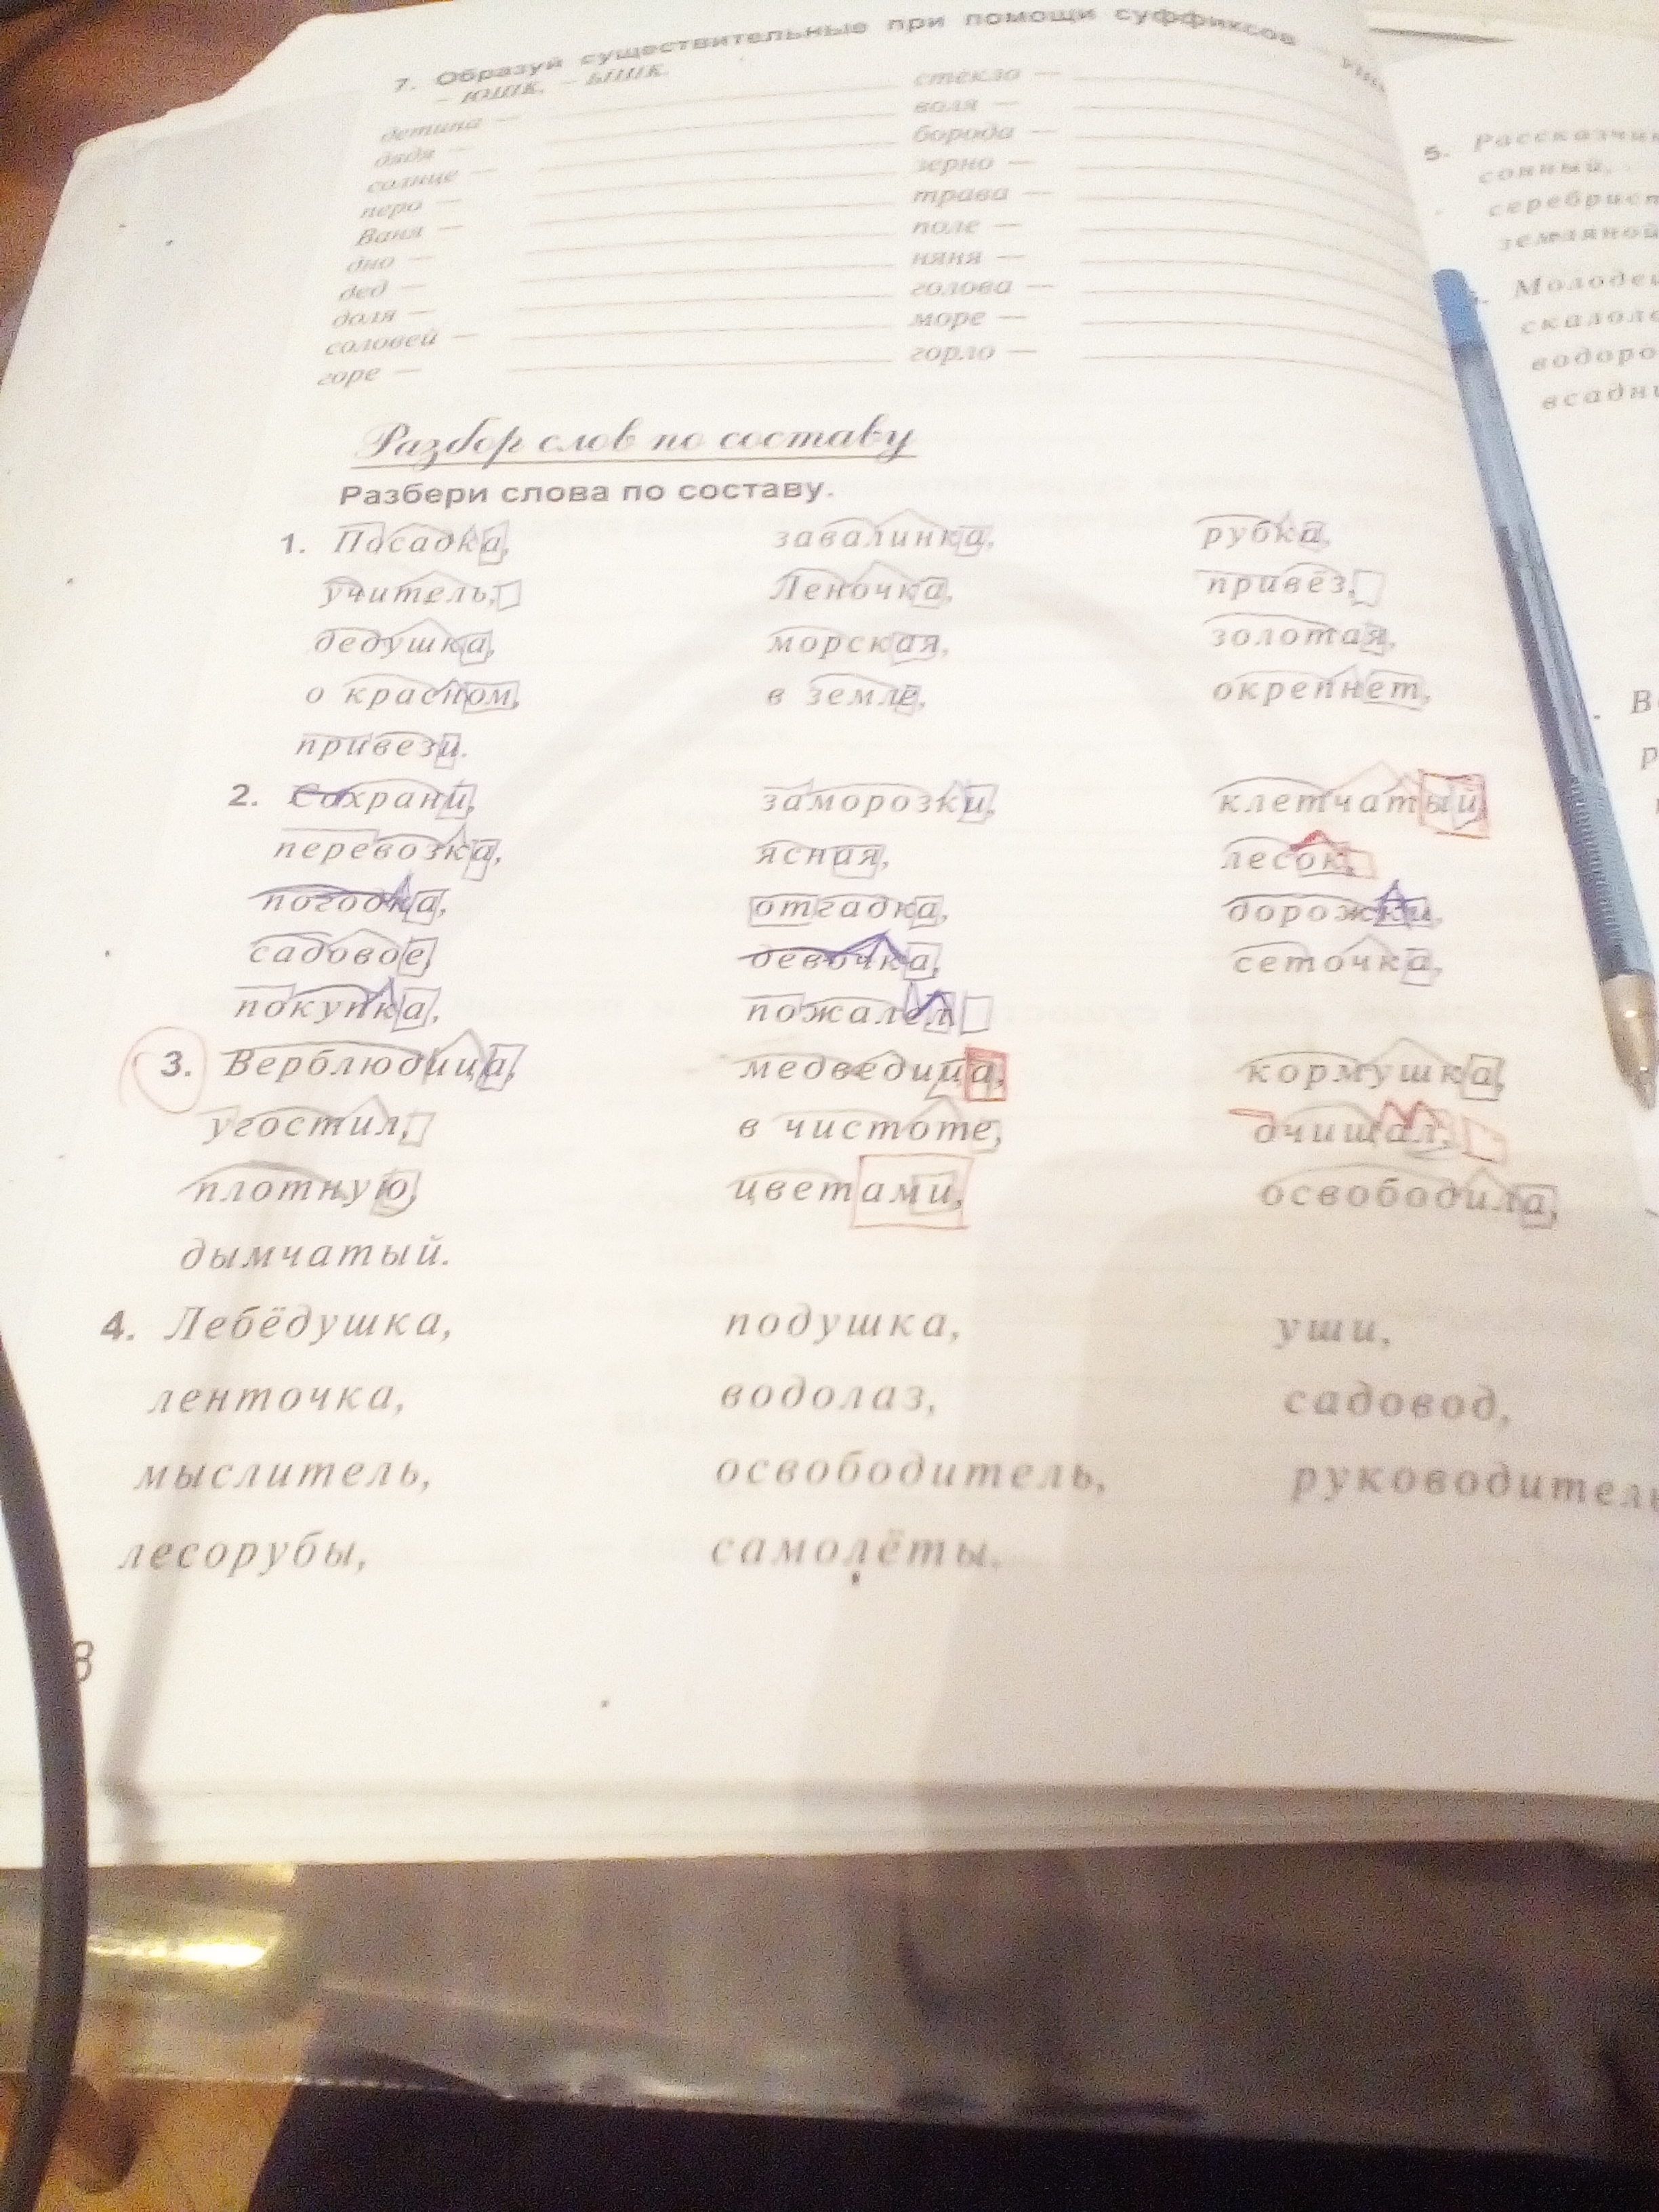 7. Образуй существительные при помощи суффиксов
– юшк, – ышк.
детина — стекло —
дядя — воля —
солнце — борода —
перо — зерно —
Ваня — трава —
дно — поле —
дед — няня —
доля — голова —
соловей — море —
горе — горло —
Разбор слов по составу
Разбери слова по составу.
1. Посадка, завалинка, рубка,
учитель, Леночка, привёз,
дедушка, морская, золотая,
о красном, в земле, окрепнет,
привези.
2. Сохрани, заморозки, клетчатый,
перевозка, ясная, лесок,
погодка, отгадка, дорожки,
садовое, девочка, сеточка,
покупка, пожалел
3. Верблюдица, медведица, кормушка,
угостил, в чистоте,
плотную, цветами, освободила,
дымчатый.
4. Лебёдушка, подушка, уши,
ленточка, водолаз, садовод,
мыслитель, освободитель, руководитель
лесорубы, самолёты.
8
5. Рассказчик
сонный,
серебрист
земляной
скалол
водоро
всадни
В
р